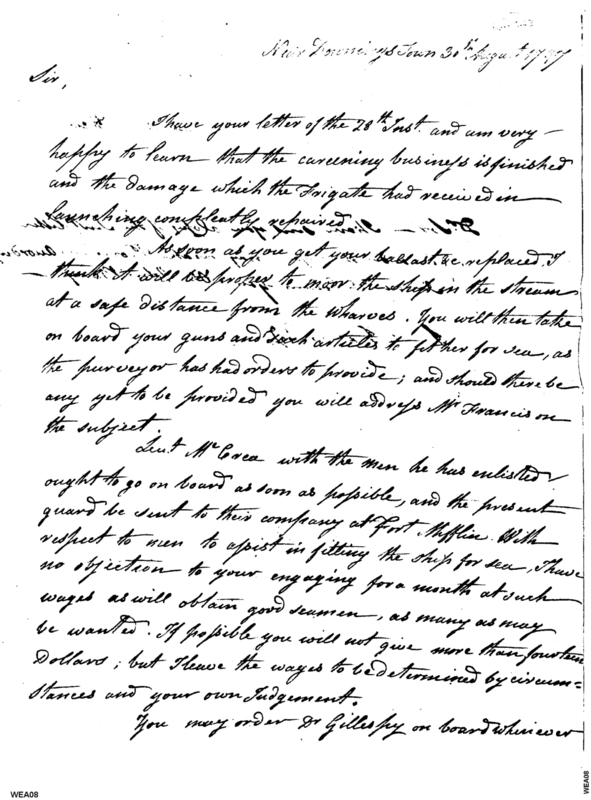 Near Downings Town 30th August 1797
Sir,
I have your letter of the 28th Inst. and am very
happy to learn that the careening business is finished
and the damage which the Frigate had received in
launching compleatly repaired.
As soon as you get your ballast &c. replaced. I
think it will be proper to moor the ship in the stream
at a safe distance from the wharves. You will then take
on board your guns and such articles to fit her for sea, as
the purveyor has had orders to provide; and should there be
any yet to be provided you will address Mr Francis on
the subject.
Lieut McCrea with the men he has enlisted
ought to go on board as soon as possible, and the present
guard be sent to their company at Fort Mifflin. With
respect to men to assist in fitting the ship for sea, I have
no objection to your engaging for a month at such
wages as will obtain good seamen, as many as may
be wanted. If possible you will not give more than fourteen
Dollars; but I leave the wages to be determined by circum=
stances and your own Judgement.
You may order Dr Gillespy on board whenever
WEA08
WEA08